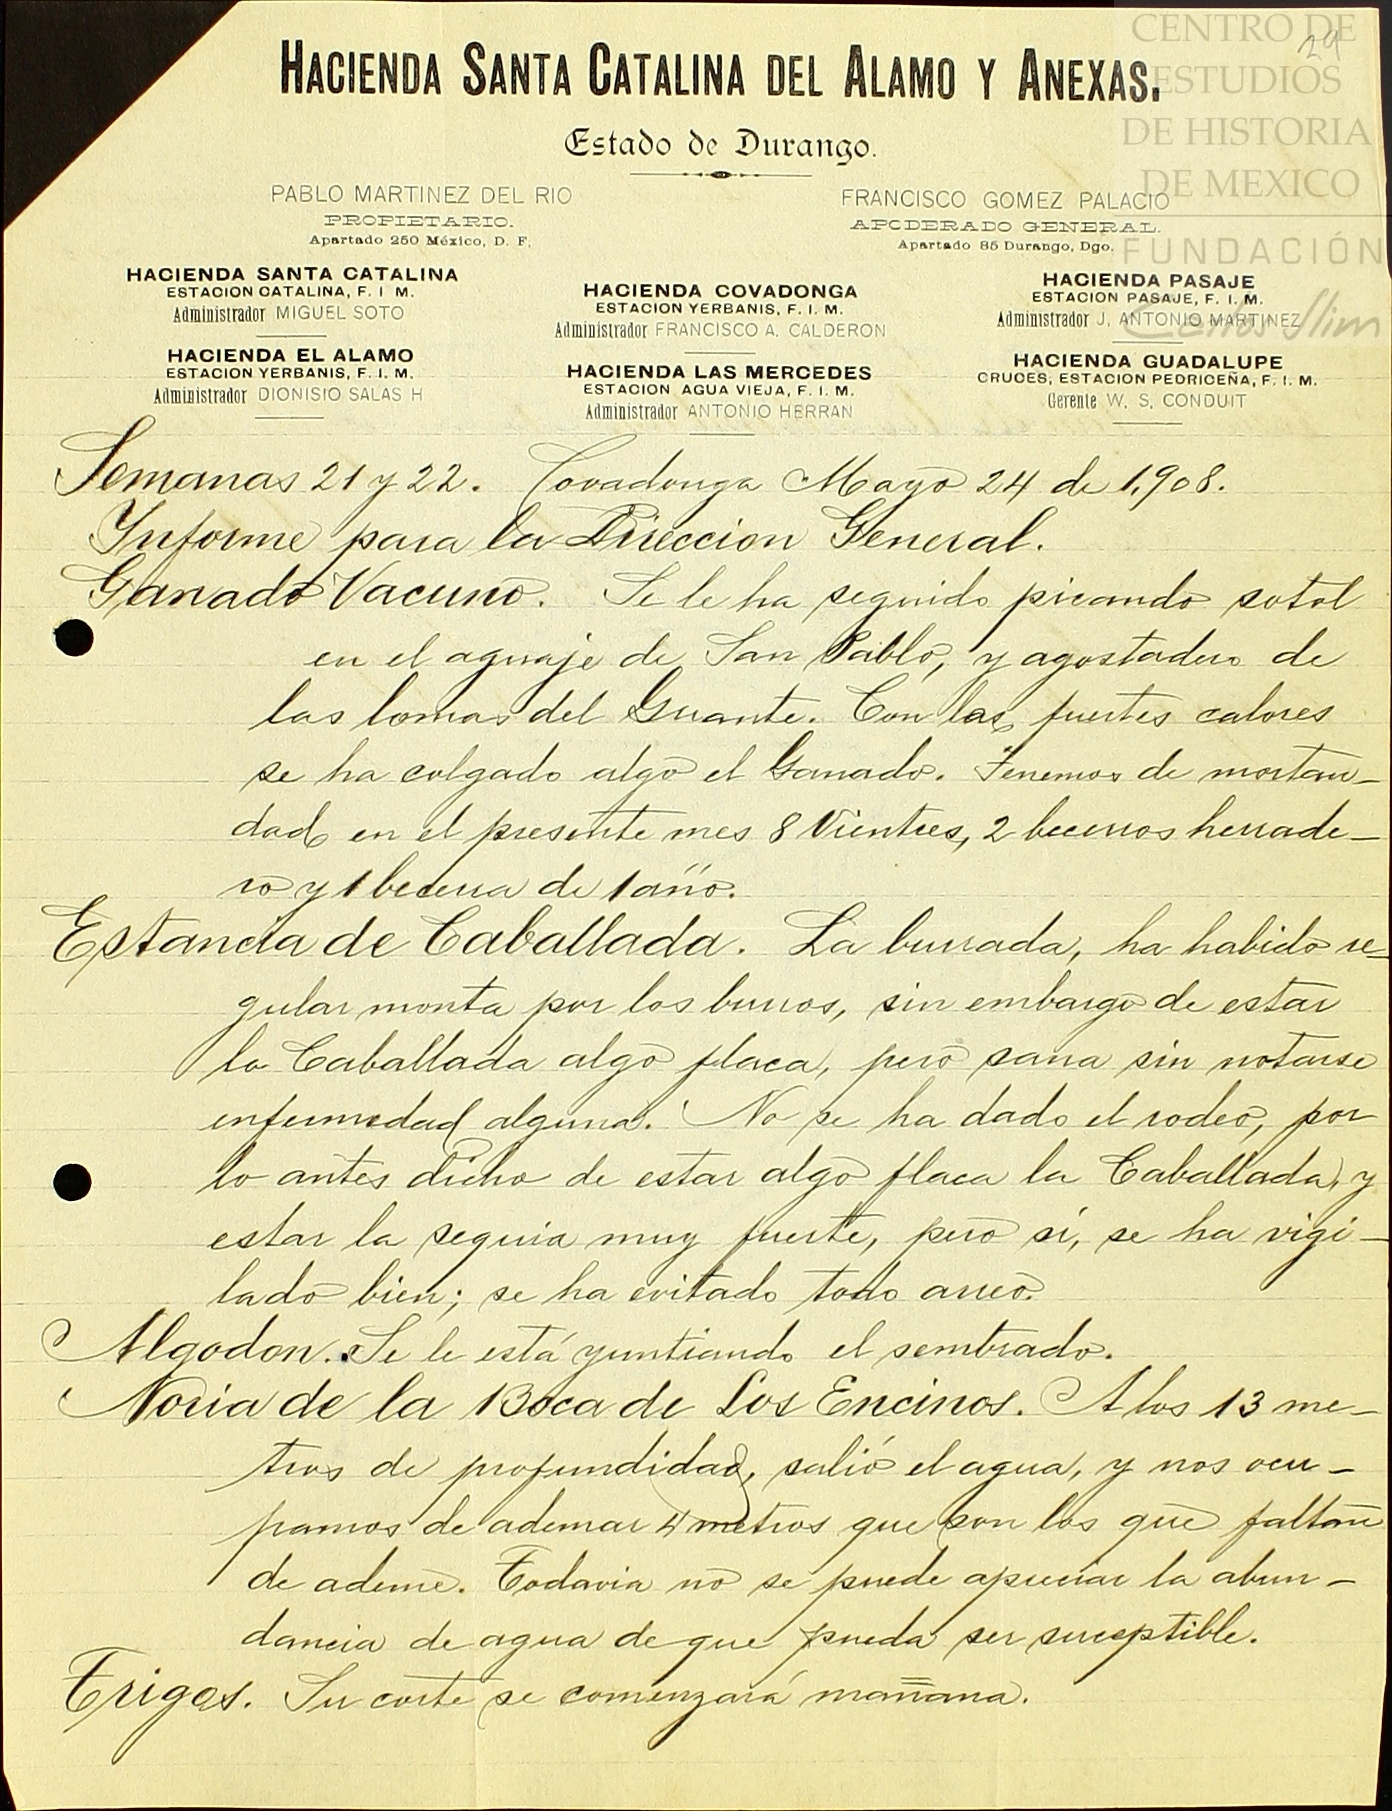 CENTRO DE
ESTUDIOS
DE HISTORIA
DE MEXICO
FUNDACIÓN
Carlos Slim
29
HACIENDA SANTA CATALINA DEL ALAMO Y ANEXAS.
Estado de Durango.
PABLO MARTINEZ DEL RIO
PROPIETARIO.
Apartado 250 México, D. F.
FRANCISCO GOMEZ PALACIO
APODERADO GENERAL.
Apartado 85 Durango, Dgo.
HACIENDA SANTA CATALINA
ESTACION CATALINA, F. I. M.
Administrador MIGUEL SOTO
HACIENDA EL ALAMO
ESTACION YERBANIS, F. I. M.
Administrador DIONISIO SALAS H
HACIENDA COVADONGA
ESTACION YERBANIS, F. I. M.
Administrador FRANCISCO A. CALDERON
HACIENDA LAS MERCEDES
ESTACION AGUA VIEJA, F. I. M.
Administrador ANTONIO HERRAN
HACIENDA PASAJE
ESTACION PASAJE, F. I. M.
Administrador J. ANTONIO MARTINEZ
HACIENDA GUADALUPE
CRUCES, ESTACION PEDRICEÑA, F. I. M.
Gerente W. S. CONDUIT
Semanas 21 y 22. Covadonga Mayo 24 de 1,908.
Informe para la Direccion General.
Ganado Vacuno. Se le ha seguido picando sotol
en el aguaje de San Pablo, y agostadero de
las lomas del Guante. Con las fuertes calores
se ha colgado algo el Ganado. Tenemos de mortan-
dad en el presente mes 8 Vientres, 2 becerros herrade-
ro y 1 becerra de 1 año.
Estancia de Caballada. La burrada, ha habido re-
gular monta por los burros, sin embargo de estar
la Caballada algo flaca, pero sana sin notarse
enfermedad alguna. No se ha dado el rodeo, por
lo antes dicho de estar algo flaca la Caballada, y
estar la seguia muy fuerte, pero si, se ha vigi-
lado bien; se ha evitado todo arreo.
Algodon. Se le está yuntiando el sembrado.
Noria de la Boca de Los Encinos. A los 13 me-
tros de profundidad, salió el agua, y nos ocu-
pamos de ademar 4 metros que son los que faltan
de ademe. Todavia no se puede apreciar la abun-
dancia de agua de que pueda ser suceptible.
Trigos. Su corte se comenzará mañana.